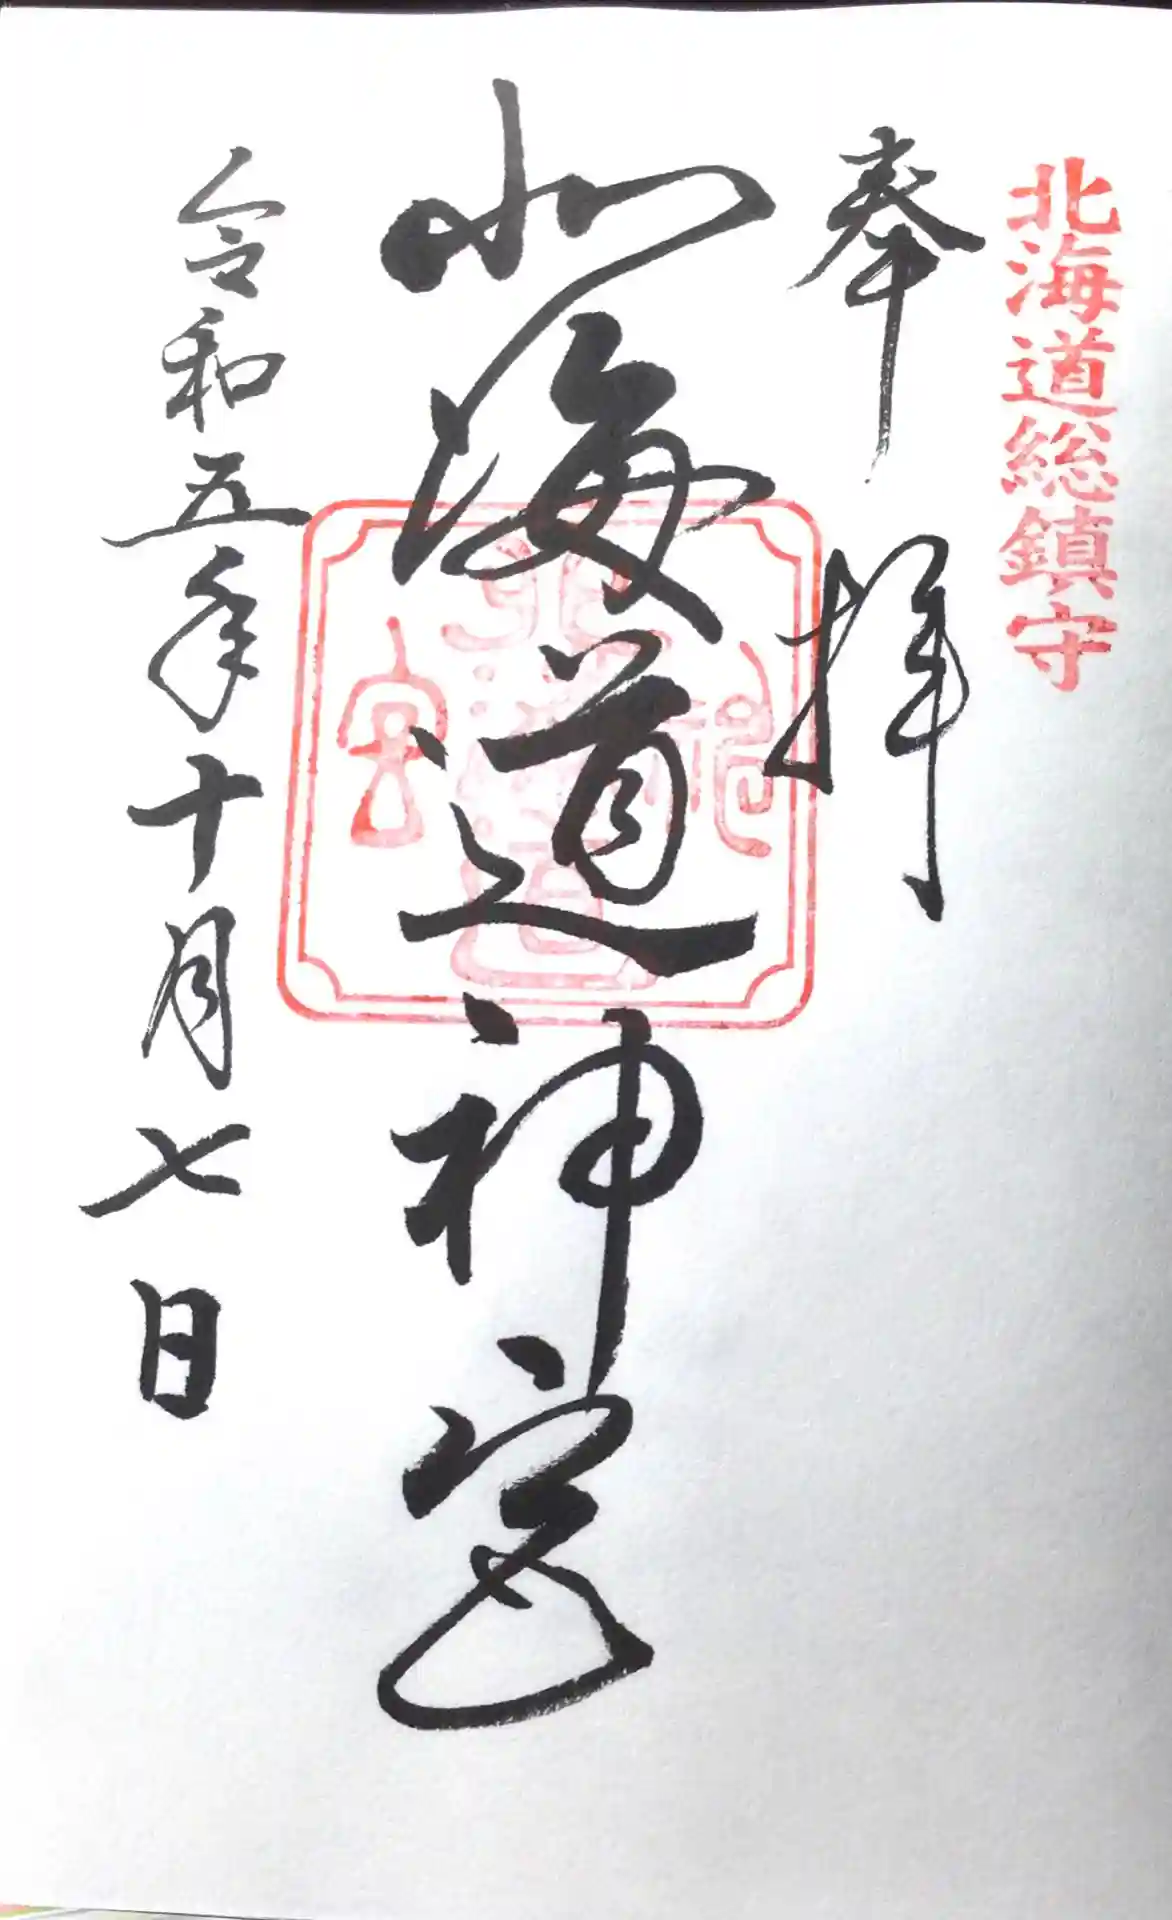 北海道総鎮守
奉拝
北海道神宮
北海道神宮
令和五年十月七日